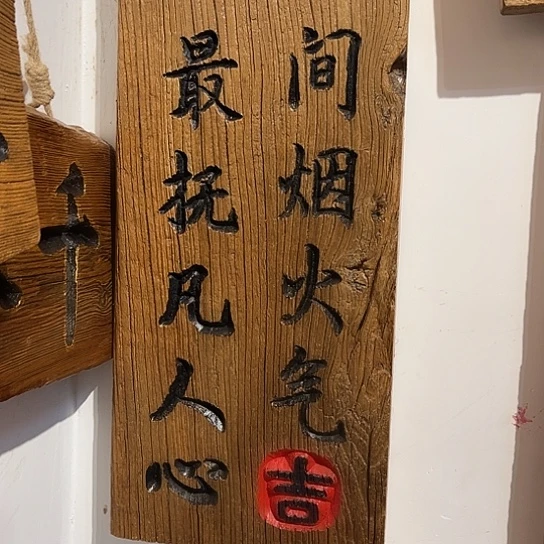 间烟火气
吉
最抚凡人心
千